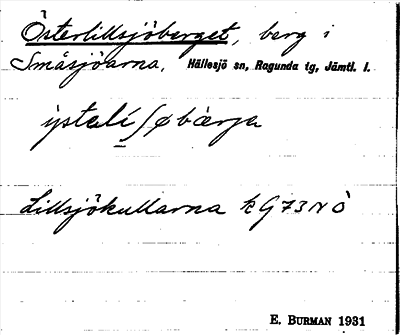 Österlillsjöberget, berg i
Småsjöarna, Hällesjö sn, Ragunda tg, Jämtl. l.
Lillsjökullarna k G 73 N Ö
E. BURMAN 1931